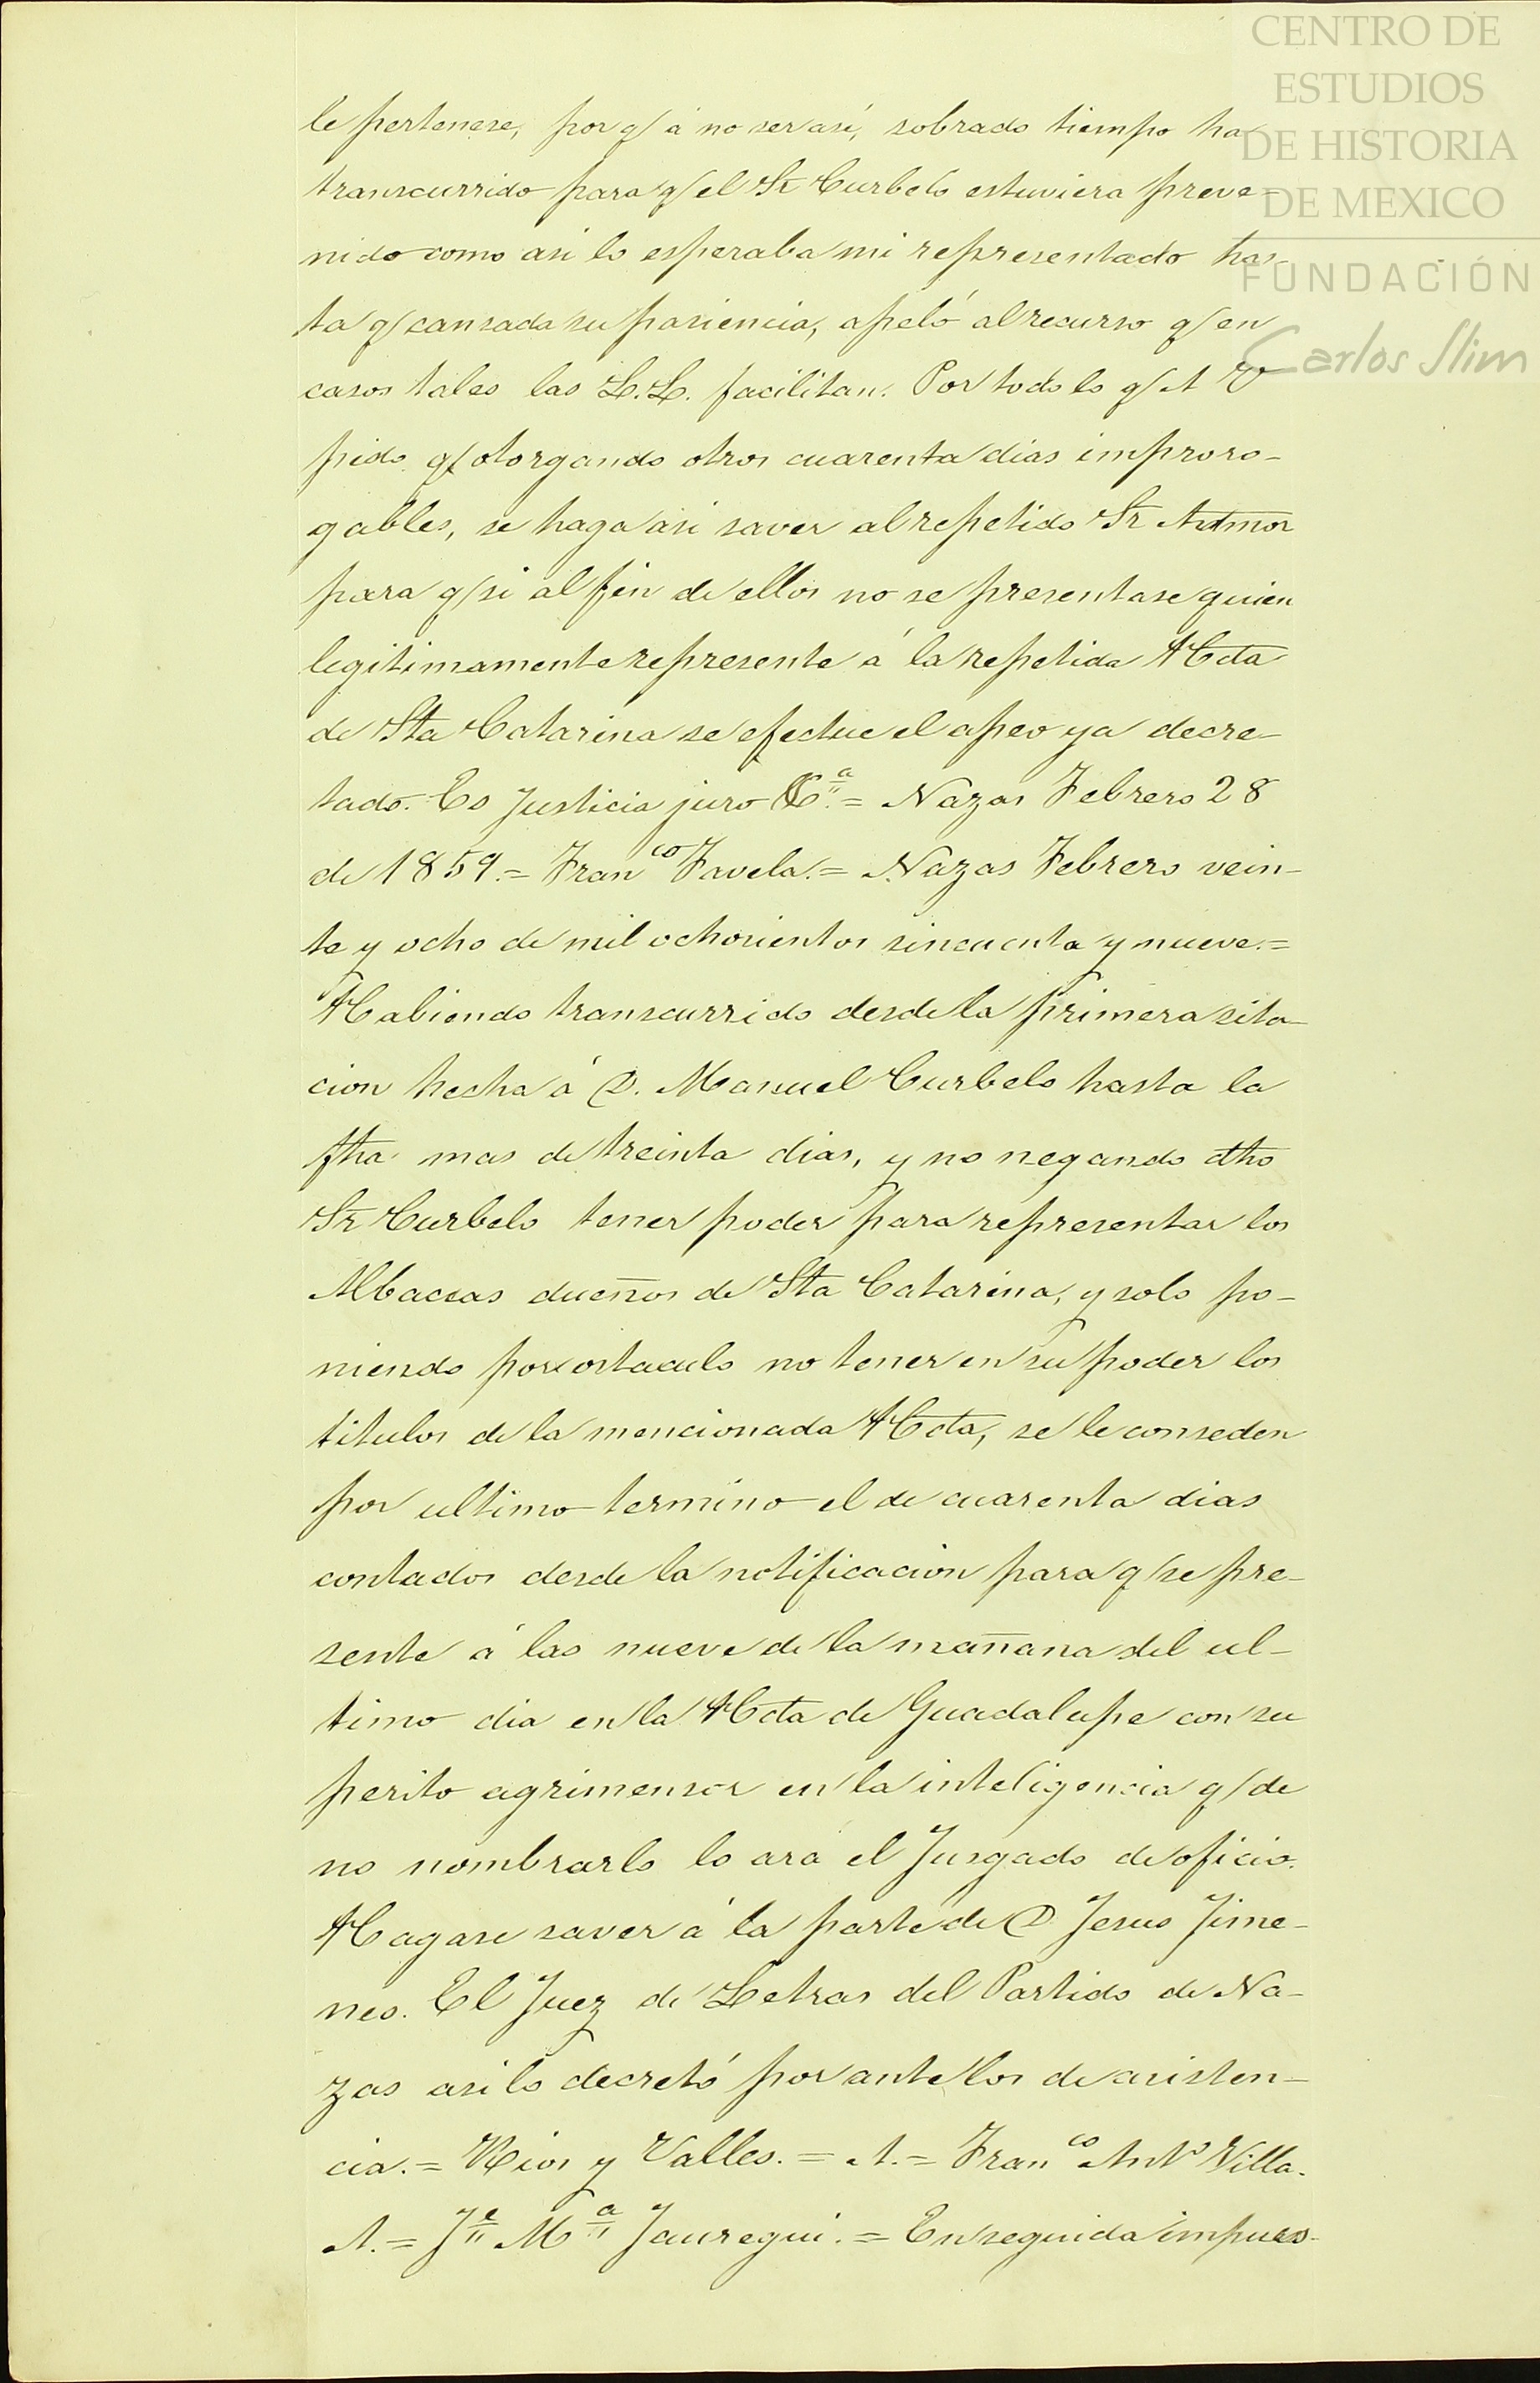 CENTRO DE
ESTUDIOS
DE HISTORIA
DE MEXICO
FUNDACIÓN
Carlos Slim
le pertenese, por q/ á no ser asi, sobrado tiempo ha
transcurrido para q/ el Sr Curbelo estuviera preve-
nido como asi lo esperaba mi representado has-
ta q/ cansada su pasiencia, apeló al recurso q/ en
casos tales las L.L. facilitan. Por todo lo q/ A V
pido q/ otorgando otros cuarenta dias improro-
gables, se haga asi saver al repetido Sr Admor
para q/ si al fin de ellos no se presentase quien
legitimamente represente á la repetida Hcda
de Sta Catarina se efectue el apeo ya decre-
tado. Es Justicia juro &ª = Nazas Febrero 28
de 1859. = Franco Favela. = Nazas Febrero vein-
te y ocho de mil ochosientos sincuenta y nueve. =
Habiendo transcurrido desde la primera sita-
cion hecha á D. Manuel Curbelo hasta la
fha mas de treinta dias, y no negando dho
Sr Curbelo tener poder para representar los
Albaceas dueños de Sta Catarina, y solo po-
niendo por ostaculo no tener en su poder los
titulos de la mencionada Hcda, se le conseden
por ultimo termino el de cuarenta dias
contados desde la notificacion para q/ se pre-
sente á las nueve de la mañana del ul-
timo dia en la Hcda de Guadalupe con su
perito agrimensor en la inteligencia q/ de
no nombrarlo lo ara el Jusgado de oficio.
Hagase saver á la parte de D Jesus Jime-
nes. El Juez de Letras del Partido de Na-
zas asi lo decretó por ante los de asisten-
cia. = Rios y Valles. = A. = Franco Anto Villa.
A. = Je Ma Jauregui. = Enseguida impues-